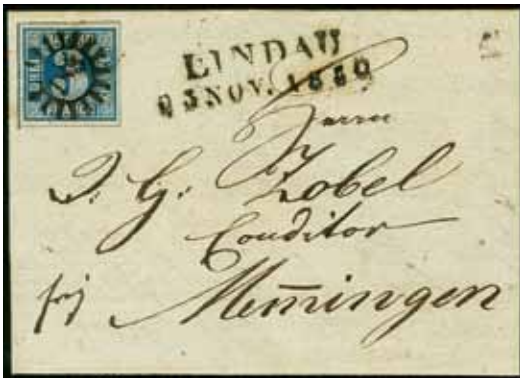 LINDAU
NOV. 1850
Herrn
J. G. Zobel
Conditor
Mem̄ingen